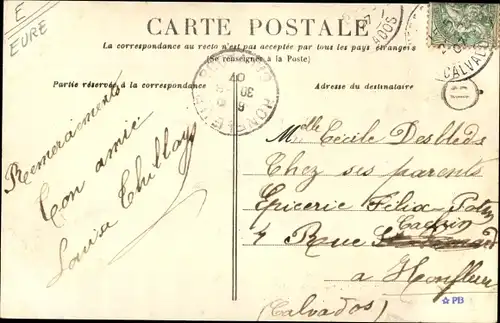 E
EURE
CARTE POSTALE
La correspondance au recto n'est pas acceptée par tous les pays étrangers
(Se renseigner à la Poste)
Partie réservée à la correspondance
Adresse du destinataire
CALVADOS
HONFLEUR
Remerciements
Ton amie
Louise Thillay
Melle Cécile Desbleds
Chez ses parents
Epicerie Félix Potin
7 Rue
à Honfleur
(Calvados)
PB